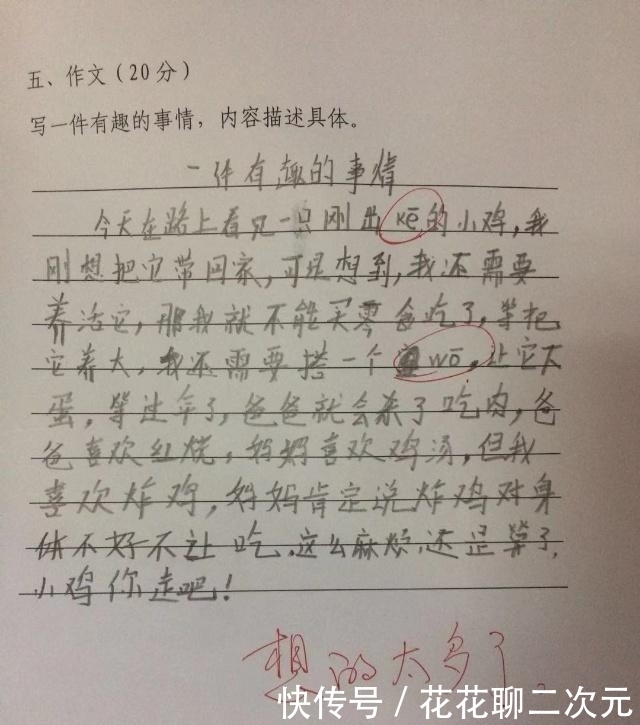 五、作文(20分)
写一件有趣的事情，内容描述具体。
一件有趣的事情
今天在路上看见一只刚出kē的小鸡,我
刚想把它带回家,可是想到,我还需要
养活它,那我就不能买零食吃了,等把
它养大,我还需要搭一个wō,让它下
蛋,等过年了,爸爸就会杀了吃肉,爸
爸喜欢红烧,妈妈喜欢鸡汤,但我
喜欢炸鸡,妈妈肯定说炸鸡对身
体不好不让吃,这么麻烦,还是算了,
小鸡你走吧!
想的太多了。
快传号/花花聊二次元